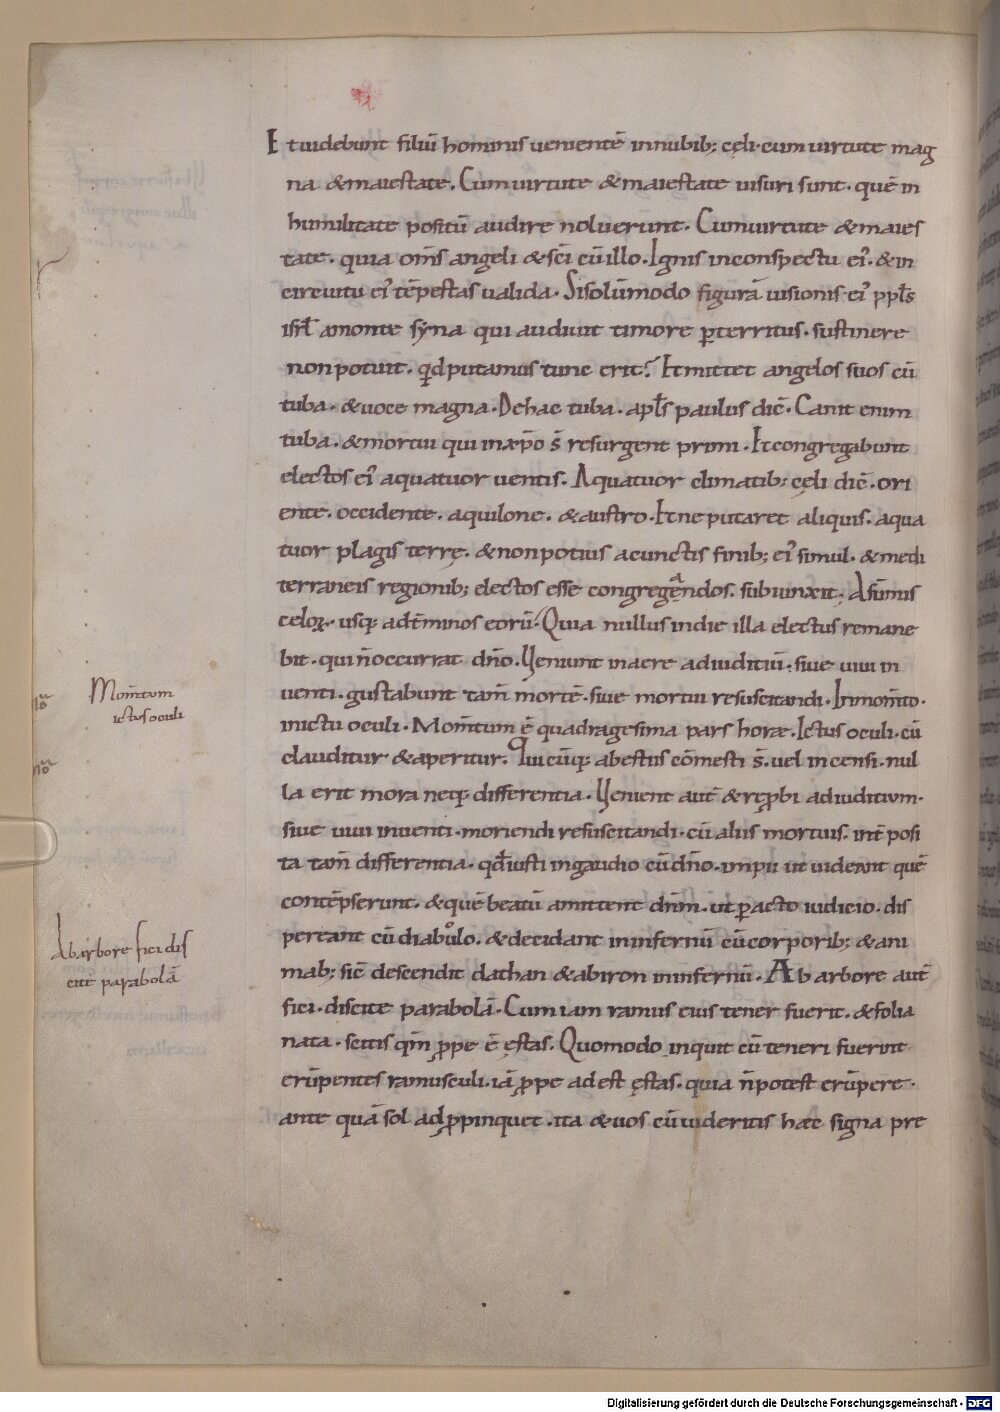 Et uidebunt filiū hominis uenientē in nubib; cęli. cum uirtute mag
na & maiestate. Cum uirtute & maiestate uisuri sunt. quē in
humilitate positū audire noluerunt. Cum uirtute & maies
tate. quia om̄s angeli & sc̄i cū illo. Ignis in conspectu ei᾽. & in
circuitu ei᾽ tēpestas ualida. Si solūmodo figurā uisionis ei᾽ ppl̄s
isrl̄ a monte syna qui audiuit timore ꝑterritus. sustinere
non potuit. qd̄ putamus tunc erit? Et mittet angelos suos cū
tuba. & uoce magna. De hac tuba. apl̄s paulus dic̄. Canit enim
tuba. & mortui qui in xp̄o s̄ resurgent primi. Et congregabunt
electos ei᾽ a quatuor uentis. A quatuor climatib; cęli dic̄. ori
ente. occidente. aquilone. & austro. Et ne putaret aliquis. a qua
tuor plagis terrę. & non potius a cunctis finib; ei᾽ simul. & medi
terraneis regionib; electos esse congregandos. subiunxit. A sūmis
celoꝝ. usq; ad t̄minos eorū. Quia nullus in die illa electus remane
bit. qui n̄ occurrat dn̄o. Ueniunt in aere ad iuditiū. siue uiui in
uenti. gustabunt tam̄ mortē. siue mortui resuscitandi. In mom̄to.
in ictu oculi. Mom̄tum ē quadragesima pars horæ. Ictus oculi. cū
clauditur & aperitur. Quicūq; a bestiis cōmesti s̄. uel incensi. nul
la erit mora neq; differentia. Uenient aut̄ & rep̱bi ad iuditium.
siue uiui inuenti. moriendi resuscitandi. cū aliis mortuis. int̄ posi
ta tam̄ differentia. qd̄ iusti in gaudio cū dn̄o. impii ut uideant quē
contēpserunt. & quē beatū amittent dn̄m. ut ꝑacto iudicio. dis
pereant cū diabolo. & decidant in infernū cū corporib; & ani
mab; sic̄ descendit dathan & abiron in infernū. Ab arbore aut̄
fici. discite parabolā. Cum iam ramus eius tener fuerit. & folia
nata. scitis qm̄ ꝓpe ē ęstas. Quomodo inquit cū teneri fuerint
erūpentes ramusculi. iā ꝓpe adest ęstas. quia n̄ potest erūpere.
ante quā sol adꝓpinquet. ita & uos cū uideritis hæc signa pre
Mom̄tum
ictus oculi
Ab arbore fici dis
cite parabolā
Digitalisierung gefördert durch die Deutsche Forschungsgemeinschaft - DFG